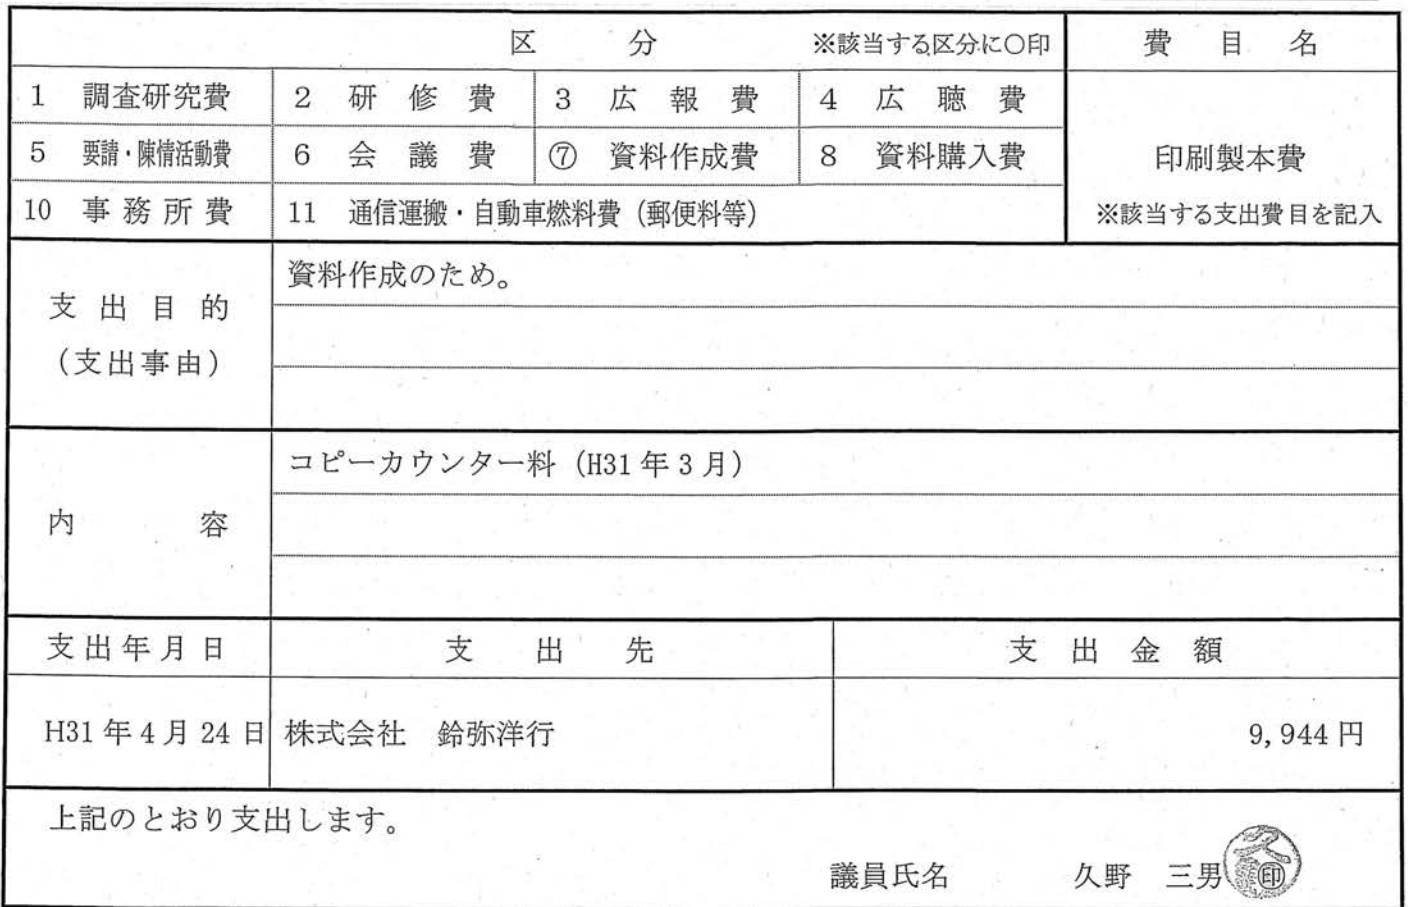 区 分 ※該当する区分に○印 費 目 名
1 調査研究費 2 研 修 費 3 広 報 費 4 広 聴 費
5 要請・陳情活動費 6 会 議 費 ⑦ 資料作成費 8 資料購入費 印刷製本費
10 事務所費 11 通信運搬・自動車燃料費（郵便料等） ※該当する支出費目を記入
資料作成のため。
支出目的
（支出事由）
コピーカウンター料（H31年3月）
内 容
支出年月日 支 出 先 支 出 金 額
H31年4月24日 株式会社 鈴弥洋行 9,944円
上記のとおり支出します。
議員氏名 久野 三男 ㊞